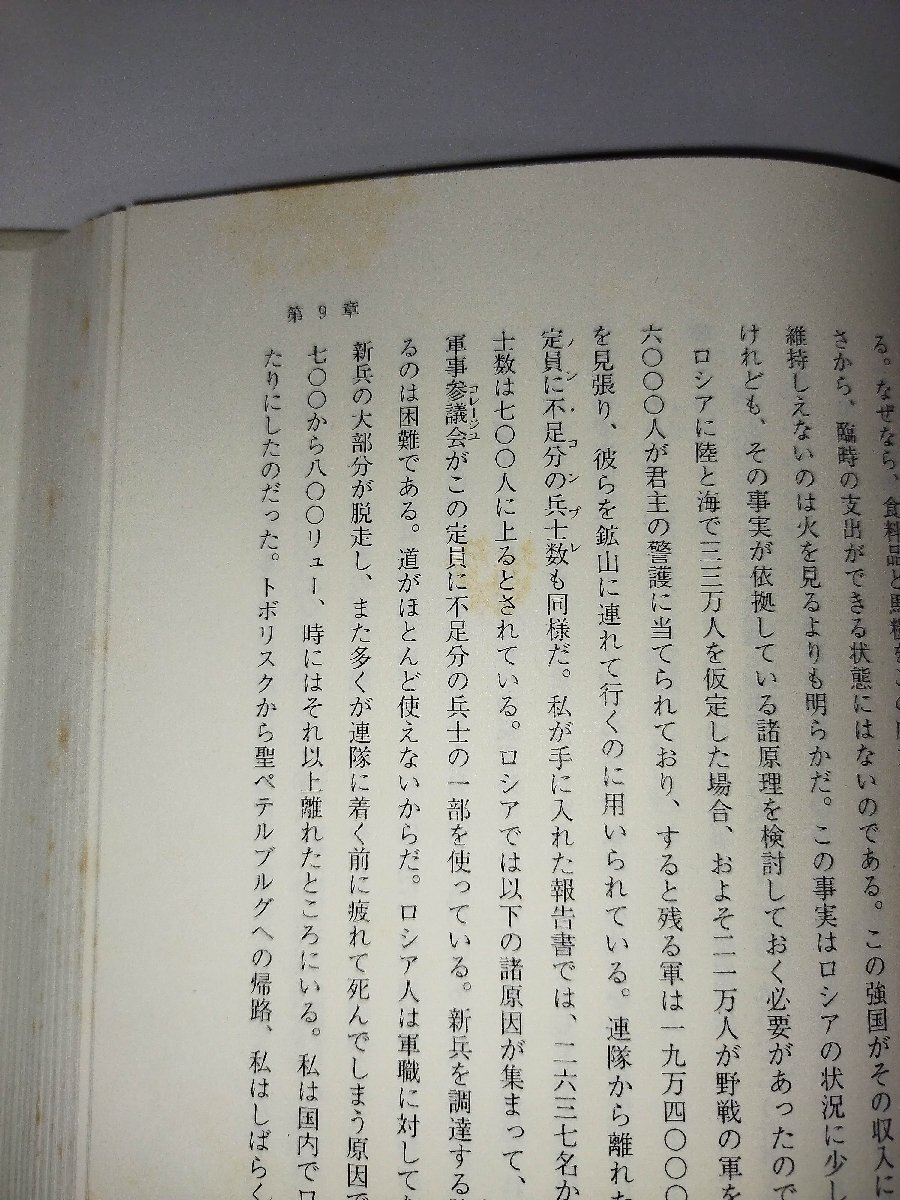 る。なぜなら、食料品と馬糧をこの
さから、臨時の支出ができる状態にはないのである。この強国がその収入に
維持しえないのは火を見るよりも明らかだ。この事実はロシアの状況に少し
けれども、その事実が依拠している諸原理を検討しておく必要があったので
ロシアに陸と海で三三万人を仮定した場合、およそ二一万人が野戦の軍を
六〇〇〇人が君主の警護に当てられており、すると残る軍は一九万四〇〇〇
を見張り、彼らを鉱山に連れて行くのに用いられている。連隊から離れた
定員に不足分の兵士数も同様だ。私が手に入れた報告書では、二六三七名か
ノン・コンプレ
士数は七〇〇人に上るとされている。ロシアでは以下の諸原因が集まって、
軍事参議会がこの定員に不足分の兵士の一部を使っている。新兵を調達する
コレージュ
るのは困難である。道がほとんど使えないからだ。ロシア人は軍職に対して
新兵の大部分が脱走し、また多くが連隊に着く前に疲れて死んでしまう原因で
七〇〇から八〇〇リュー、時にはそれ以上離れたところにいる。私は国内で
たりにしたのだった。トボリスクから聖ペテルブルグへの帰路、私はしばらく
第9章